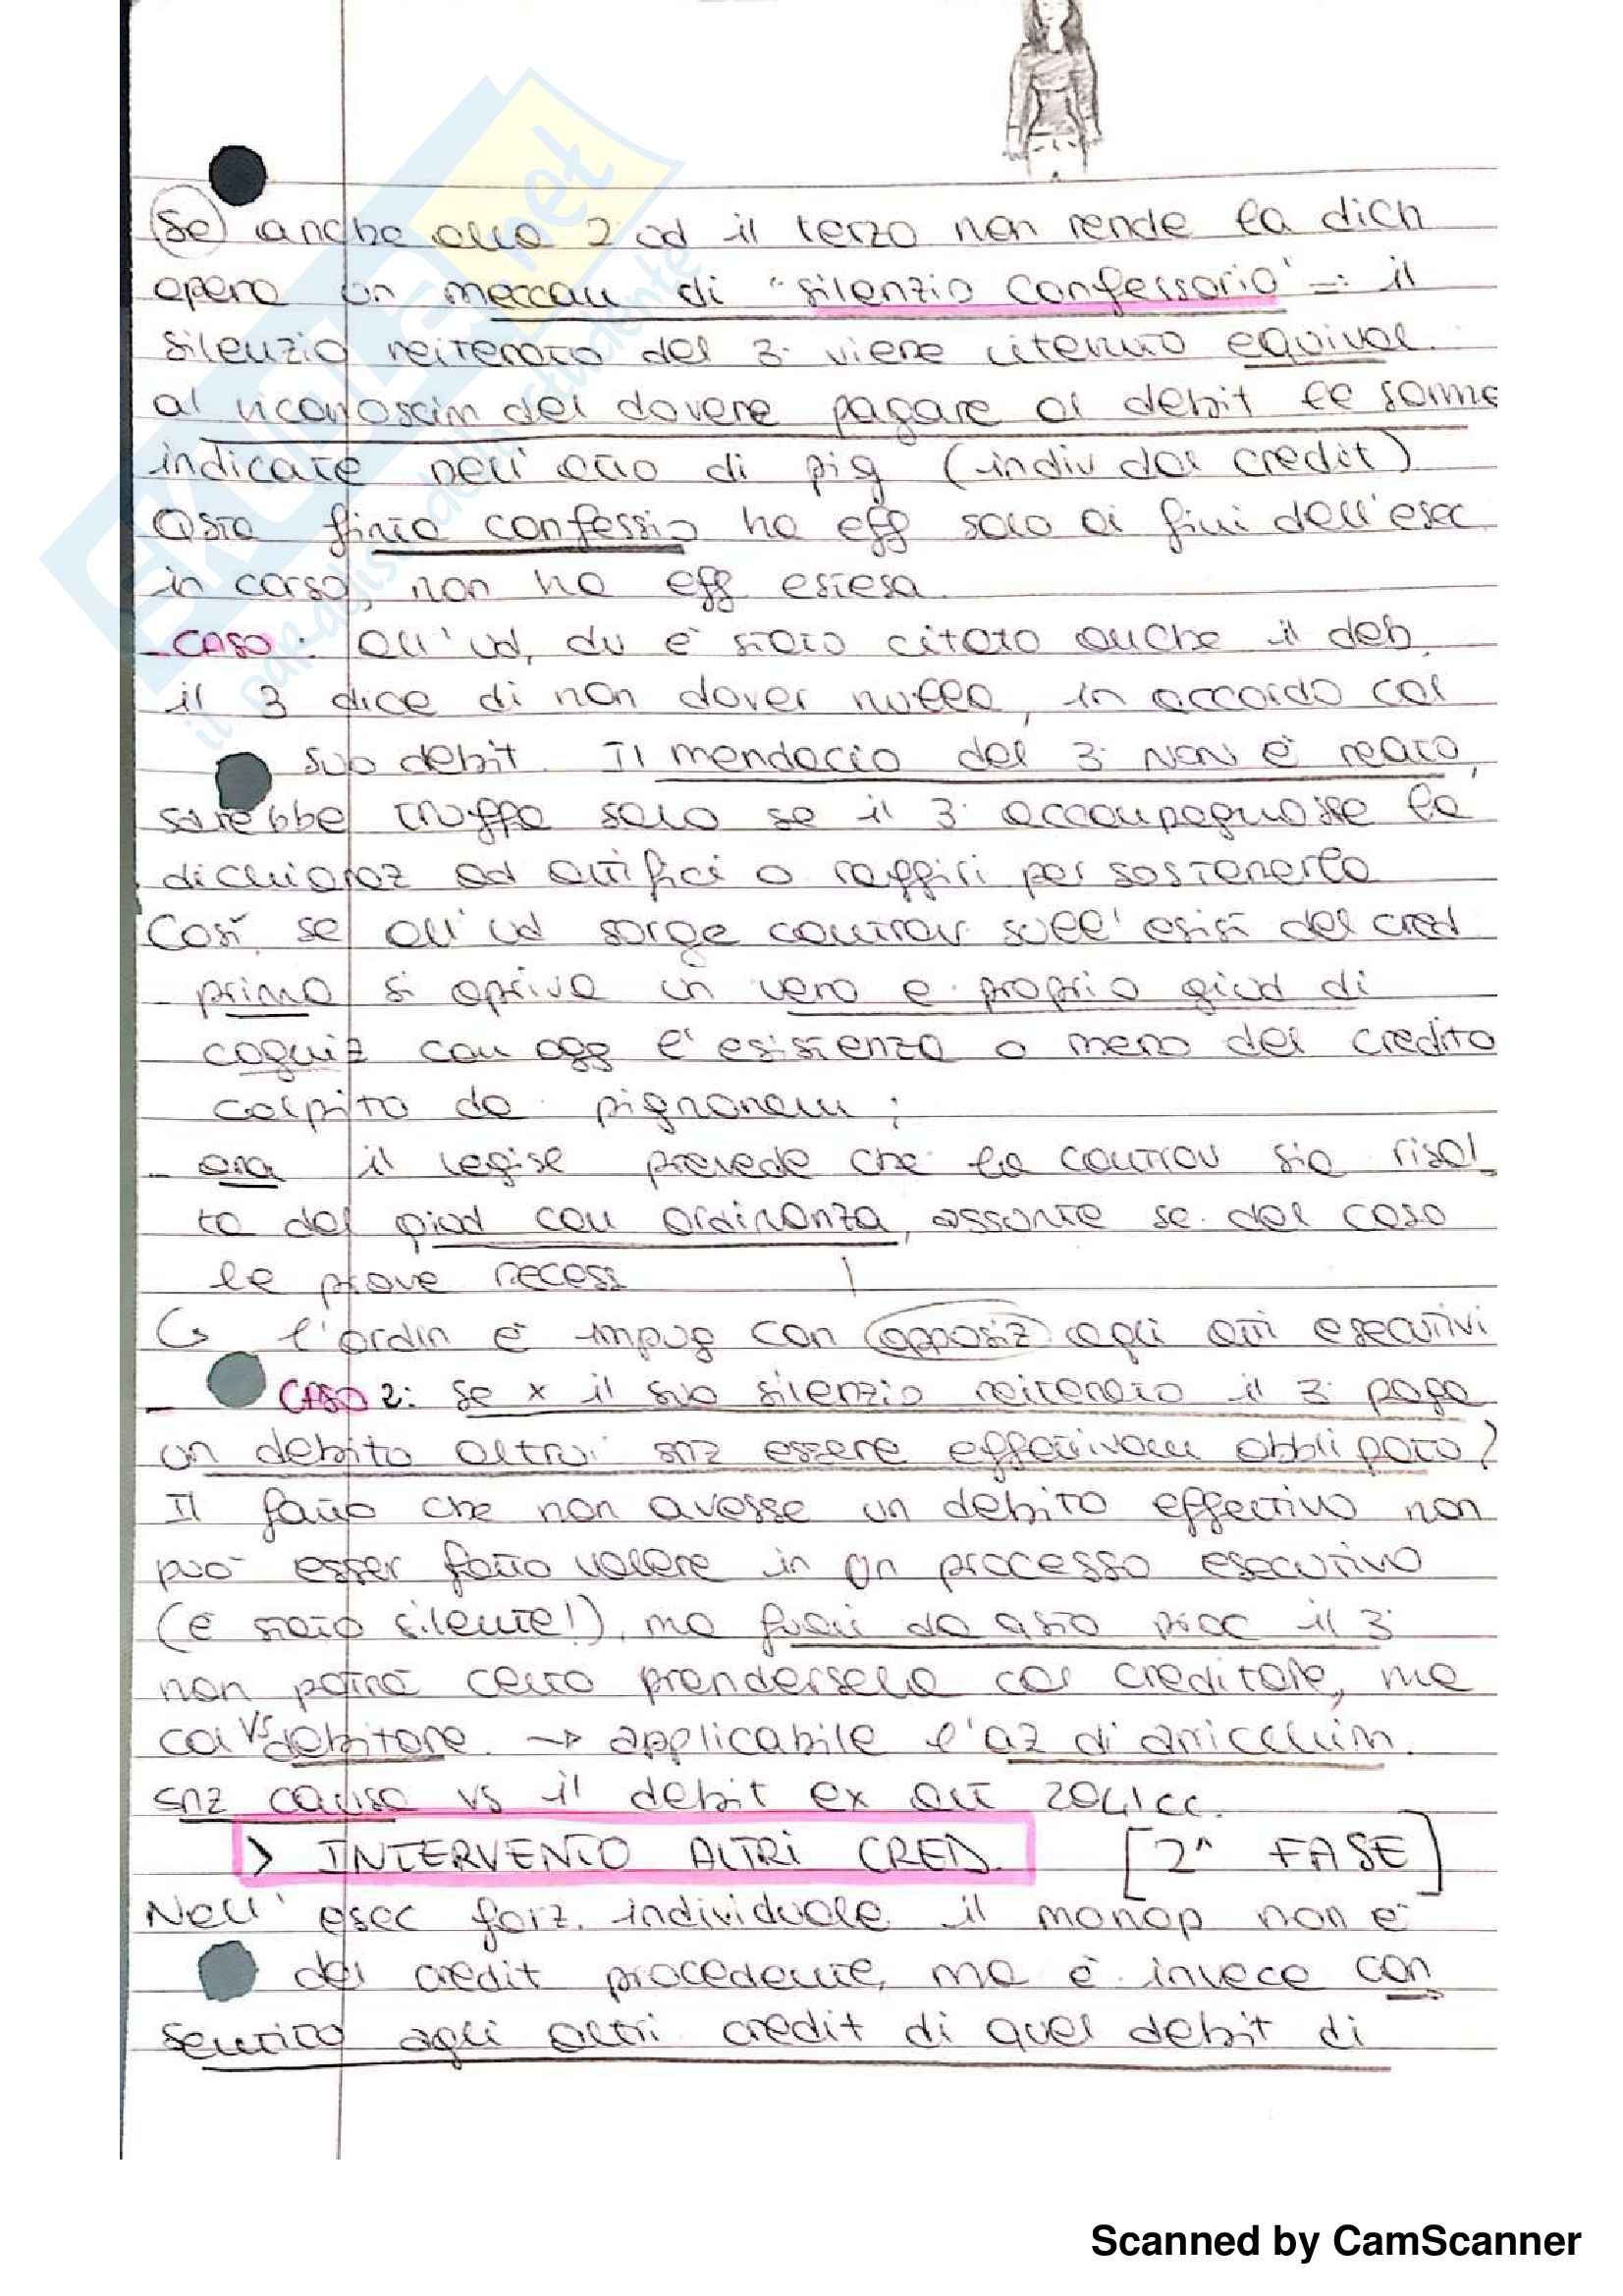 Se anche alla 2° ud il terzo non rende la dich
opera un meccan di "silenzio confessorio" =: il
silenzio reiterato del 3° viene ritenuto equival.
al riconoscim del dovere pagare al debit le somme
indicate nell'atto di pig (indiv dal credit)
Qsta finta confessio ha eff solo ai fini dell'esec
in corso, non ha eff estesa.
- CASO: All'ud, du è stato citato anche il deb,
il 3 dice di non dover nulla, in accordo col
suo debit. Il mendacio del 3° NON È reato,
sarebbe truffa solo se il 3° accompagnasse la
dichiaraz ad artifici o raggiri per sostenerla
Così se all'ud sorge controv sull'esist del cred
- prima si apriva un vero e proprio giud di
cogniz con ogg l'esistenza o meno del credito
colpito da pignoram;
- ora il legisl prevede che la controv sia risol
ta dal giud con ordinanza, assunte se del caso
le prove necess
↳ l'ordin è impug con opposiz agli atti esecutivi
- CASO 2: se x il suo silenzio reiterato il 3° paga
un debito altrui snz essere effettivam obbligato?
Il fatto che non avesse un debito effettivo non
può esser fatto valere in un processo esecutivo
(è stato silente!), ma fuori da qsto proc il 3°
non potrà certo prendersela col creditore, ma
col vs debitore. → applicabile l'az di arricchim.
snz causa vs il debit ex art 2041cc.
> INTERVENTO ALTRI CRED. [2^ FASE]
Nell'esec forz. individuale il monop non è
del credit procedente, ma è invece con
sentito agli altri credit di quel debit di
SKUOLA.net
il paradiso dello studente
Scanned by CamScanner